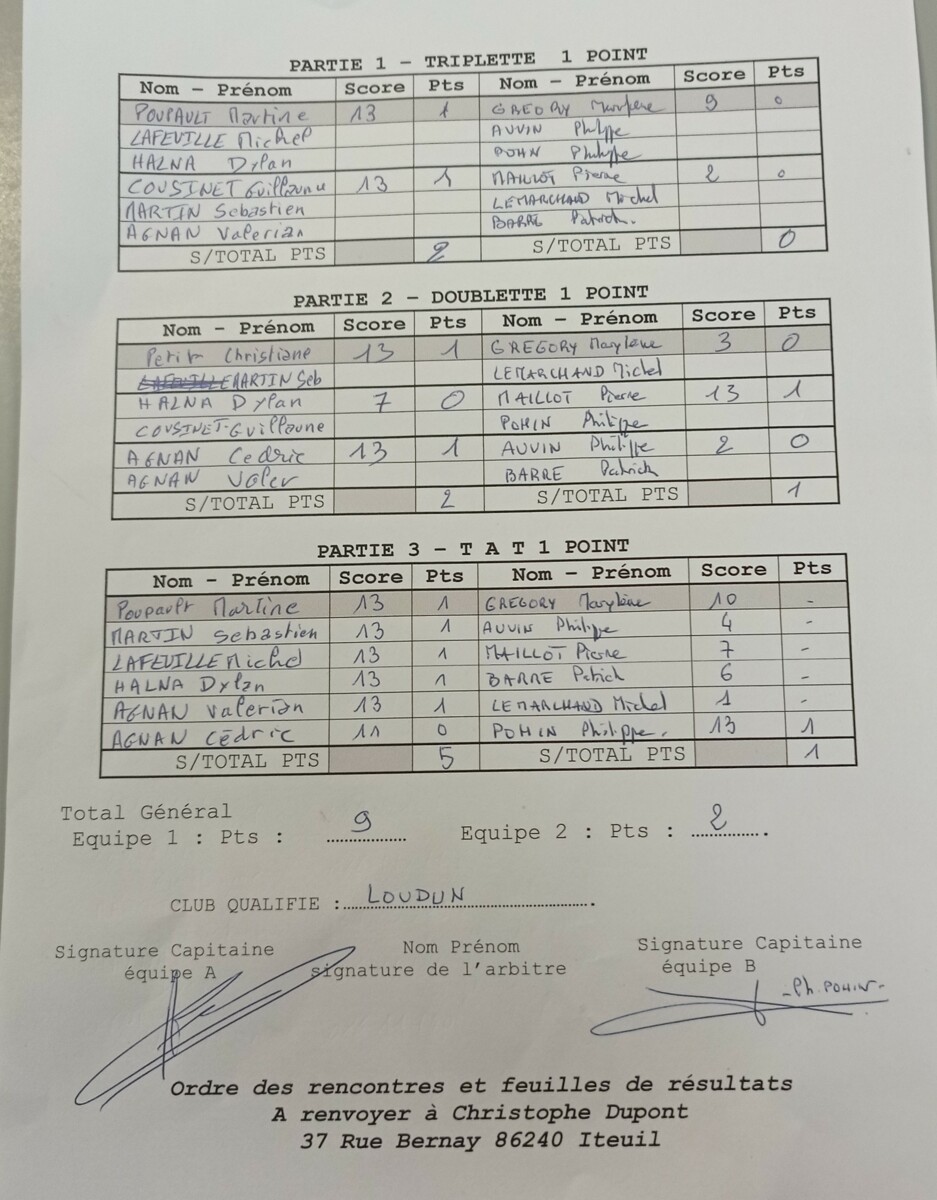 PARTIE 1 – TRIPLETTE 1 POINT
Nom – Prénom Score Pts Nom – Prénom Score Pts
POUPAULT Martine 13 1 GREGORY Marylène 9 0
LAFEUILLE Michel AUVIN Philippe
HALNA Dylan POHIN Philippe
COUSINET Guillaume 13 1 MAILLOT Pierre 2 0
MARTIN Sebastien LEMARCHAND Michel
AGNAN Valerian BARRE Patrick.
S/TOTAL PTS 2 S/TOTAL PTS 0
PARTIE 2 – DOUBLETTE 1 POINT
Nom – Prénom Score Pts Nom – Prénom Score Pts
Christiane 13 1 GREGORY Marylène 3 0
MARTIN Seb LEMARCHAND Michel
HALNA Dylan 7 0 MAILLOT Pierre 13 1
COUSINET Guillaune POHIN Philippe
AGNAN Cedric 13 1 AUVIN Philippe 2 0
AGNAN Valer BARRE Patrick
S/TOTAL PTS 2 S/TOTAL PTS 1
PARTIE 3 – T A T 1 POINT
Nom – Prénom Score Pts Nom – Prénom Score Pts
Poupault Martine 13 1 GREGORY Marylène 10 -
MARTIN Sebastien 13 1 AUVIN Philippe 4 -
LAFEUILLE Michel 13 1 MAILLOT Pierre 7 -
HALNA Dylan 13 1 BARRE Patrick 6 -
AGNAN Valerian 13 1 LEMARCHAND Michel 1 -
AGNAN Cédric 11 0 POHIN Philippe. 13 1
S/TOTAL PTS 5 S/TOTAL PTS 1
Total Général
Equipe 1 : Pts : 9 Equipe 2 : Pts : 2
CLUB QUALIFIE : LOUDUN
Signature Capitaine Nom Prénom Signature Capitaine
équipe A signature de l'arbitre équipe B
-Ph. POHIN-
Ordre des rencontres et feuilles de résultats
A renvoyer à Christophe Dupont
37 Rue Bernay 86240 Iteuil